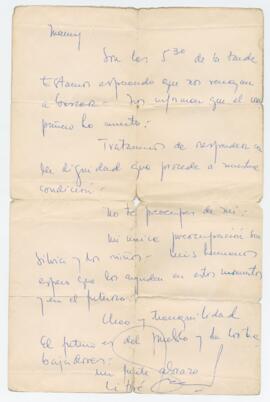 Manny
Son las 5 30 de la tarde
Estamos esperando que nos vengan
a buscar - Nos informan que el com
pañero ha muerto.-
Trataremos de responder con
la dignidad que procede a nuestra
condición.-
No te preocupes de mi.-
Mi única preocupación son
Silvia y los niños. - Mis hermanos
espero que los ayuden en estos momentos
y en el futuro.
Calma y Tranquilidad
El futuro es del Pueblo y de los tra
bajadores.-
Un fuerte abrazo!